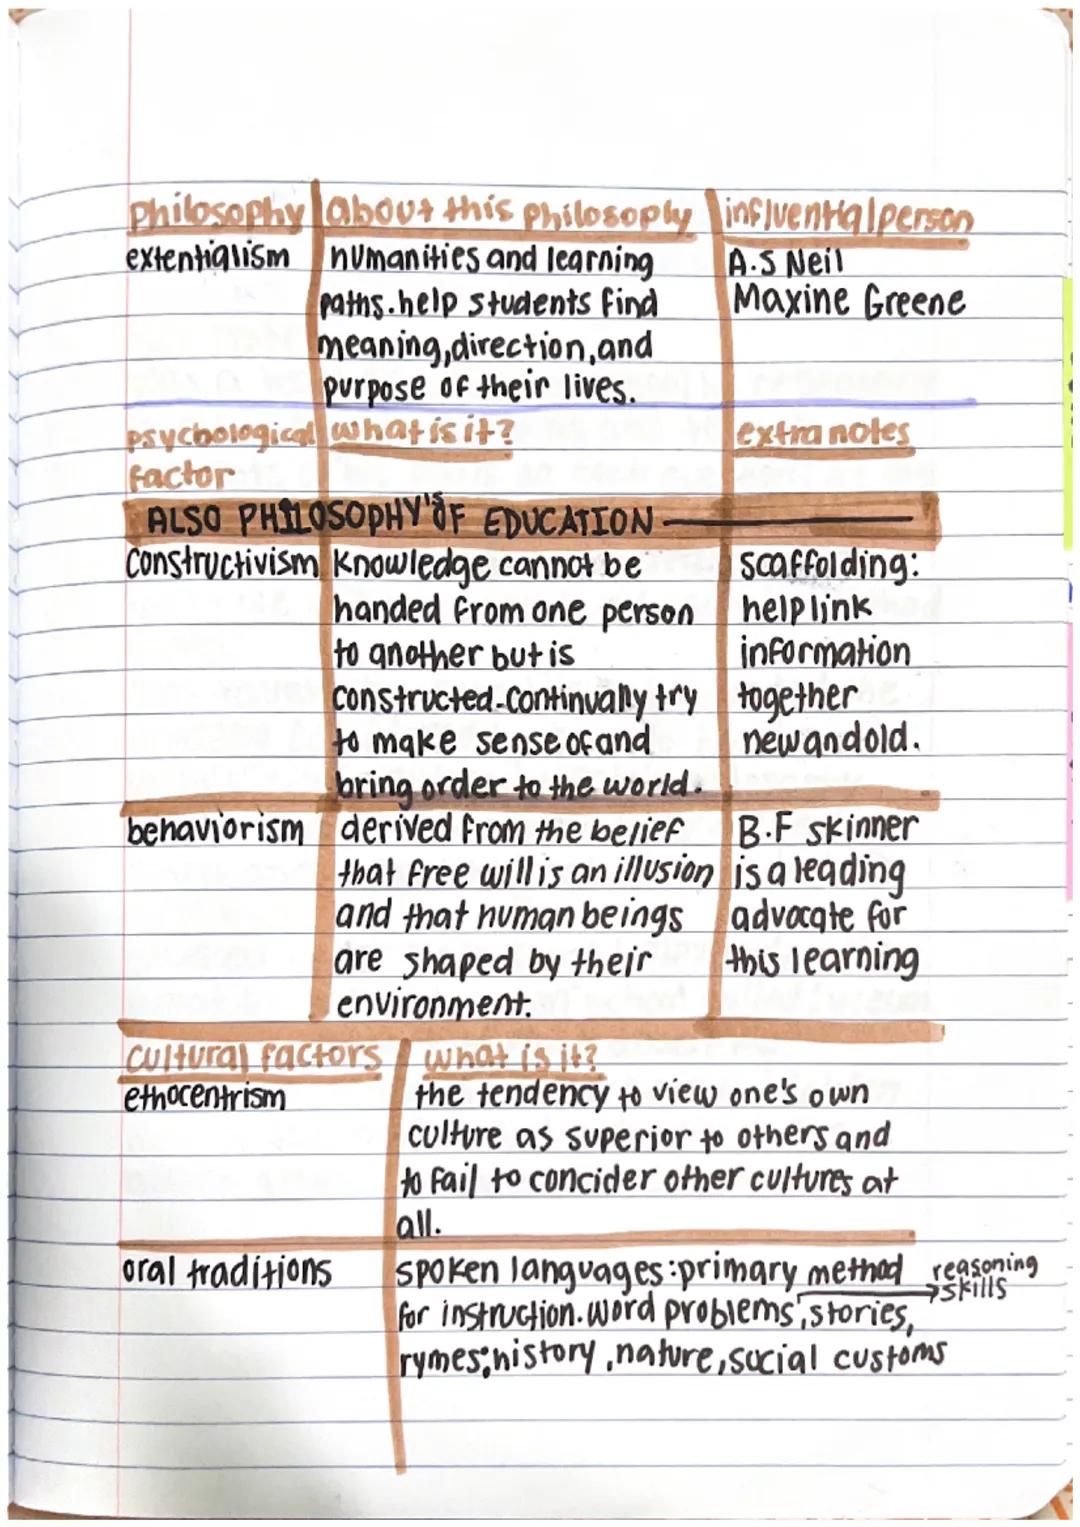 Philosophy about this philosoply influential person
extentialism humanities and learning A.S Neil
paths. help students find Maxine Greene
meaning, direction, and
purpose of their lives.
psychological what is it? extra notes
factor
ALSO PHILOSOPHY'S OF EDUCATION
Constructivism Knowledge cannot be scaffolding:
handed from one person help link
to another but is information
constructed-Continually try together
to make sense of and new and old.
bring order to the world.
behaviorism derived from the belief B.F skinner
that free will is an illusion is a leading
and that human beings advocate for
are shaped by their this learning
environment.
Cultural factors what is it?
ethocentrism the tendency to view one's own
culture as superior to others and
to fail to concider other cultures at
all.
oral traditions spoken languages: primary method reasoning
skills
for instruction. word problems, stories,
rymes; history, nature, social customs